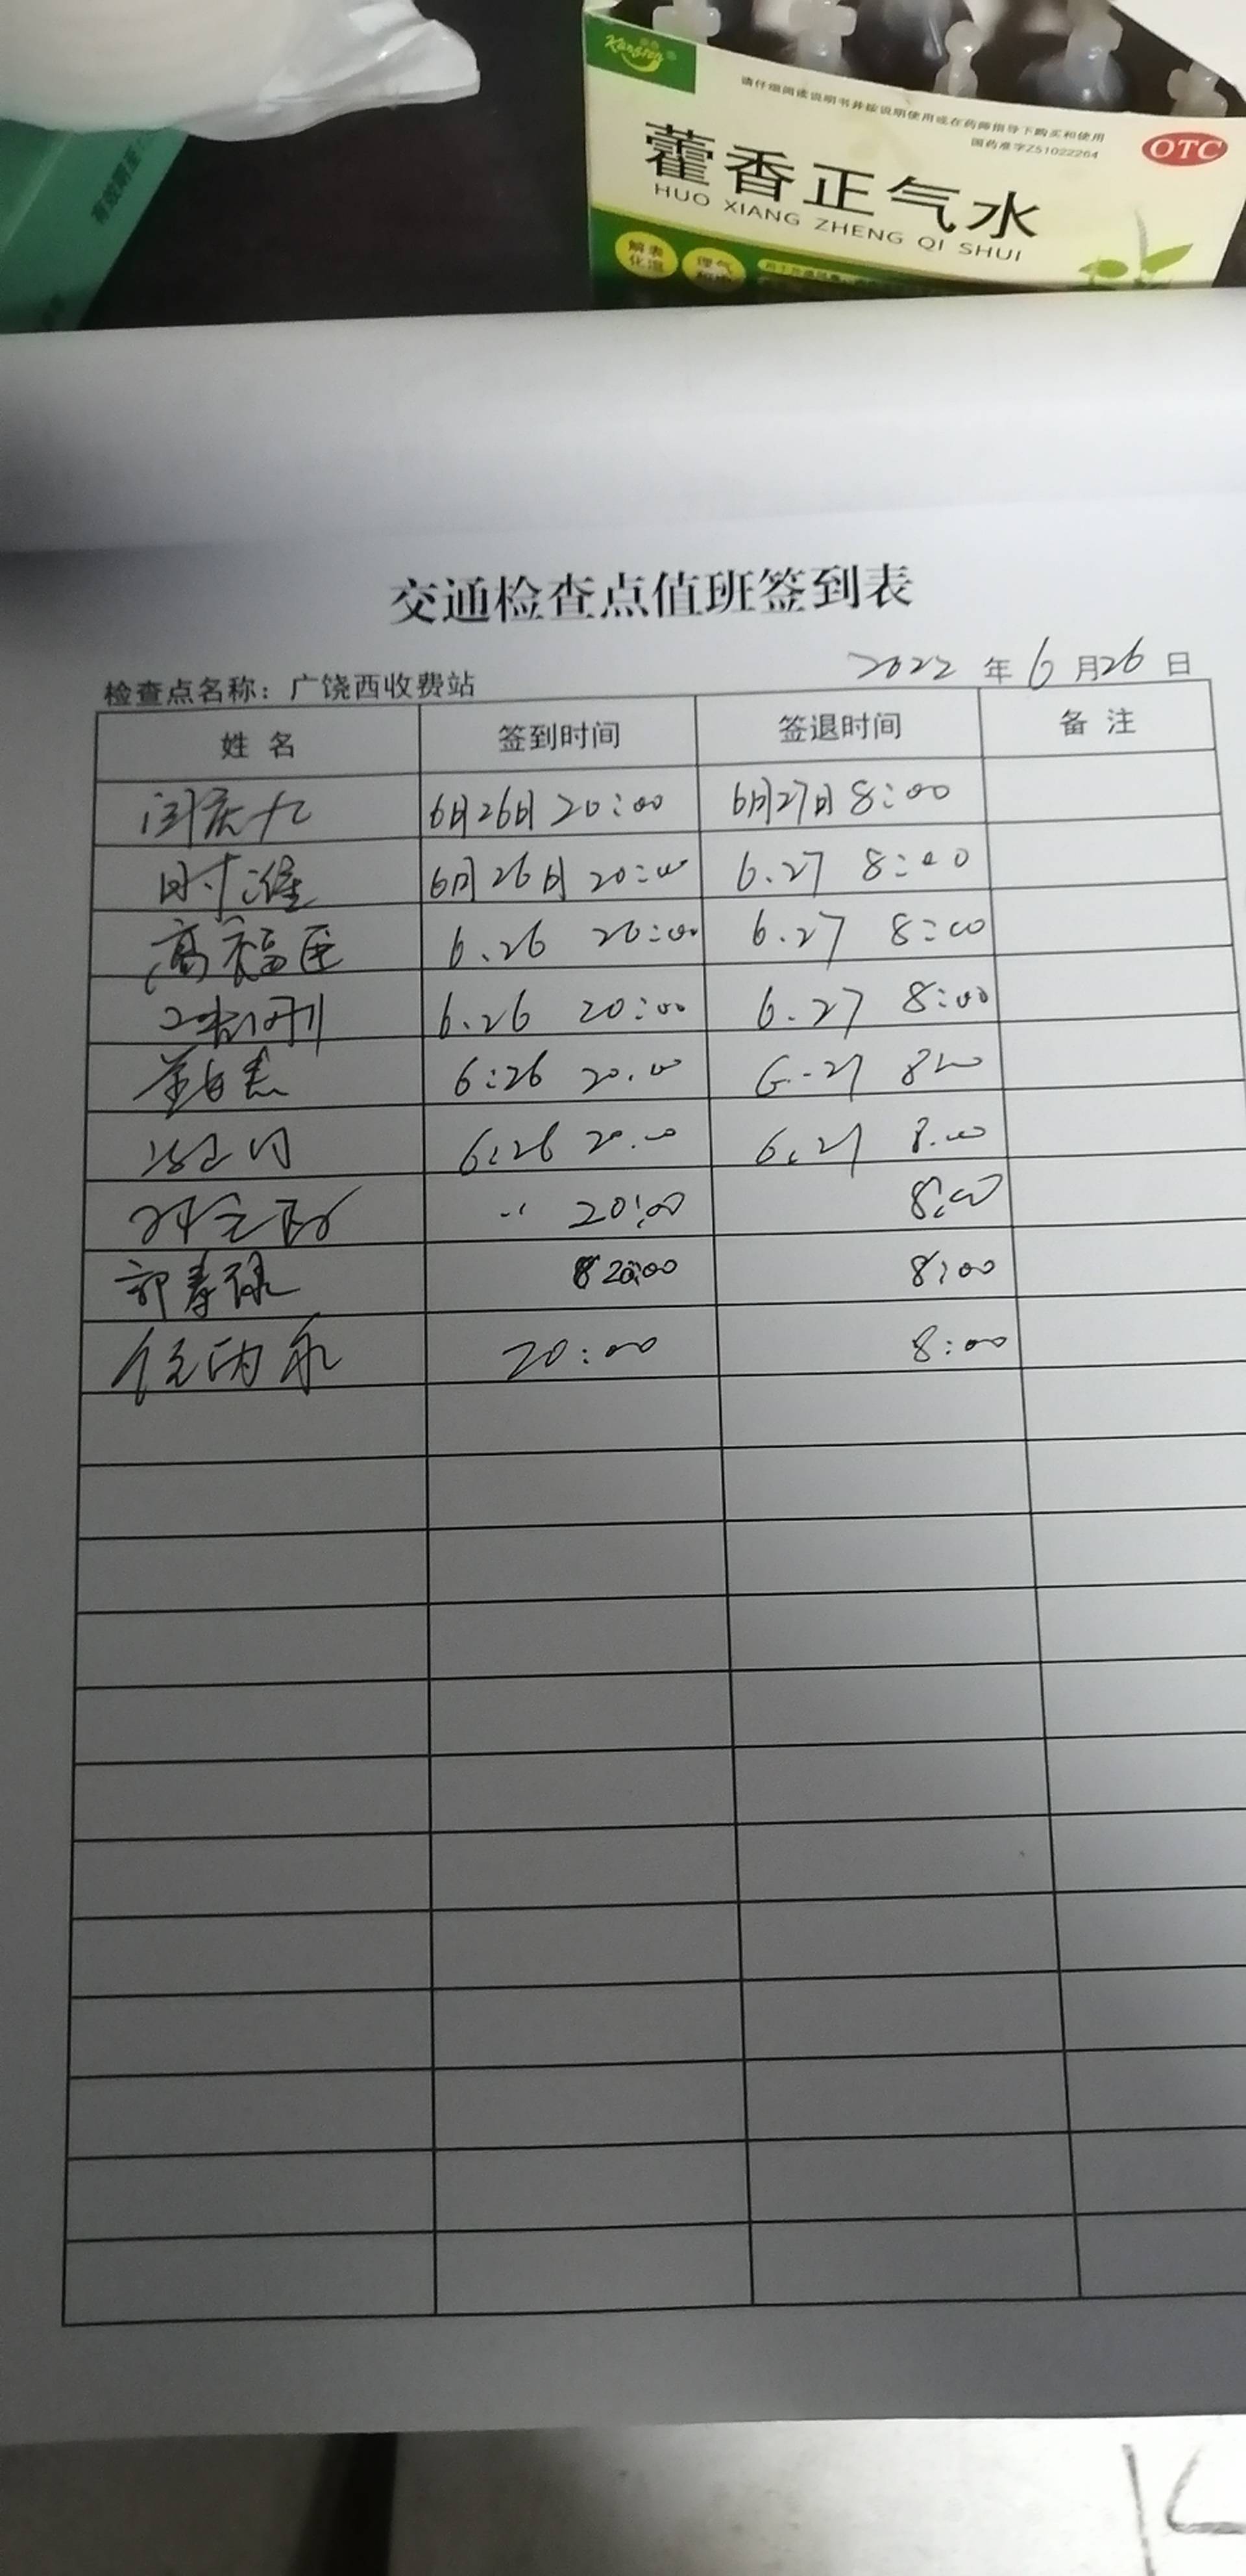 有效期至
Kangfen
请仔细阅读说明书并按说明使用或在药师指导下购买和使用
国药准字Z51022264
OTC
藿香正气水
HUO XIANG ZHENG QI SHUI
解表 化湿
理气
交通检查点值班签到表
检查点名称：广饶西收费站 2022 年 6 月 26 日
姓 名 签到时间 签退时间 备 注
6月26日 20:00 6月27日 8:00
时淮 6月26日 20:00 6.27 8:00
高福臣 6.26 20:00 6.27 8:00
6.26 20:00 6.27 8:00
6:26 20.00 6-27 8:00
6:26 20.00 6.27 8.00
20:00 8:00
郭寿禄 20:00 8:00
任丙永 20:00 8:00